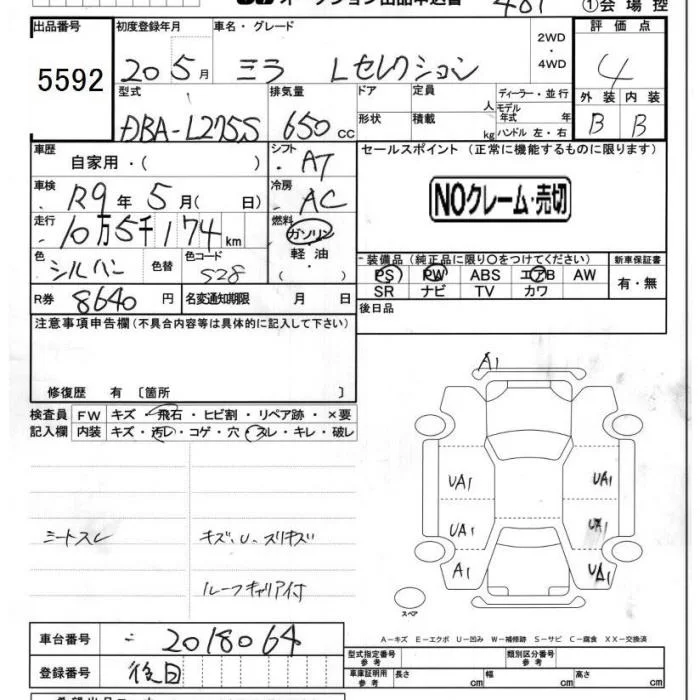 オークション出品申込書
①会場控
出品番号 初度登録年月 車名・グレード 2WD・4WD 評価点
5592 20年5月 ミラ Lセレクション 4
型式 排気量 ドア 定員 人 ディーラー・並行 外装 内装
DBA-L275S 650cc 形状 積載 kg モデル年式 年 ハンドル 左・右 B B
車歴 自家用・( ) シフト・AT セールスポイント(正常に機能するものに限ります)
車検 R9年5月( 日) 冷房・AC NOクレーム・売切
走行 10万5千174km 燃料 ガソリン・軽油・( )
色 シルバー 色替 色コード S28
装備品(純正品に限り〇をつけてください) 新車保証書
PS PW ABS エアB AW 有・無
SR ナビ TV カワ
R券 8640円 名変通知期限 月 日 後日品
注意事項申告欄(不具合内容等は具体的に記入して下さい)
修復歴 有〔箇所 〕
検査員 FW キズ・飛石・ヒビ割・リペア跡・×要
記入欄 内装 キズ・汚レ・コゲ・穴・スレ・キレ・破レ
A1
UA1 UA1
UA1 UA1
A1 UA1
シートスレ キズ、U、スリキズ
ルーフキャリア付
スペア
A−キズ E−エクボ U−凹み W−補修跡 S−サビ C−腐食 XX−交換済
車台番号 2018064
型式指定番号 参考 類別区分番号 参考
登録番号 後日 車庫証明用 参考 長さ cm 幅 cm 高さ cm